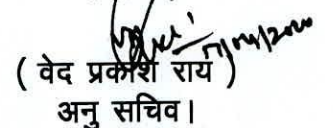 ( वेद प्रकाश राय )
अनु सचिव।